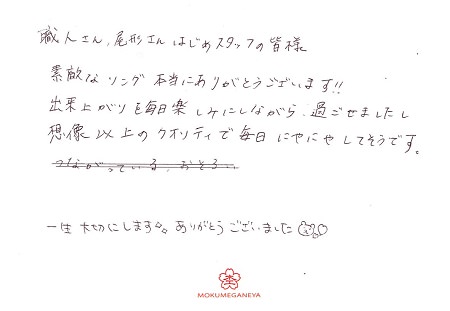 職人さん、尾形さんはじめスタッフの皆様
素敵なリング本当にありがとうございます!!
出来上がりを毎日楽しみにしながら、過ごせましたし
想像以上のクオリティで毎日にやにやしてそうです。
つながっている、
一生大切にします ありがとうございました
MOKUMEGANEYA